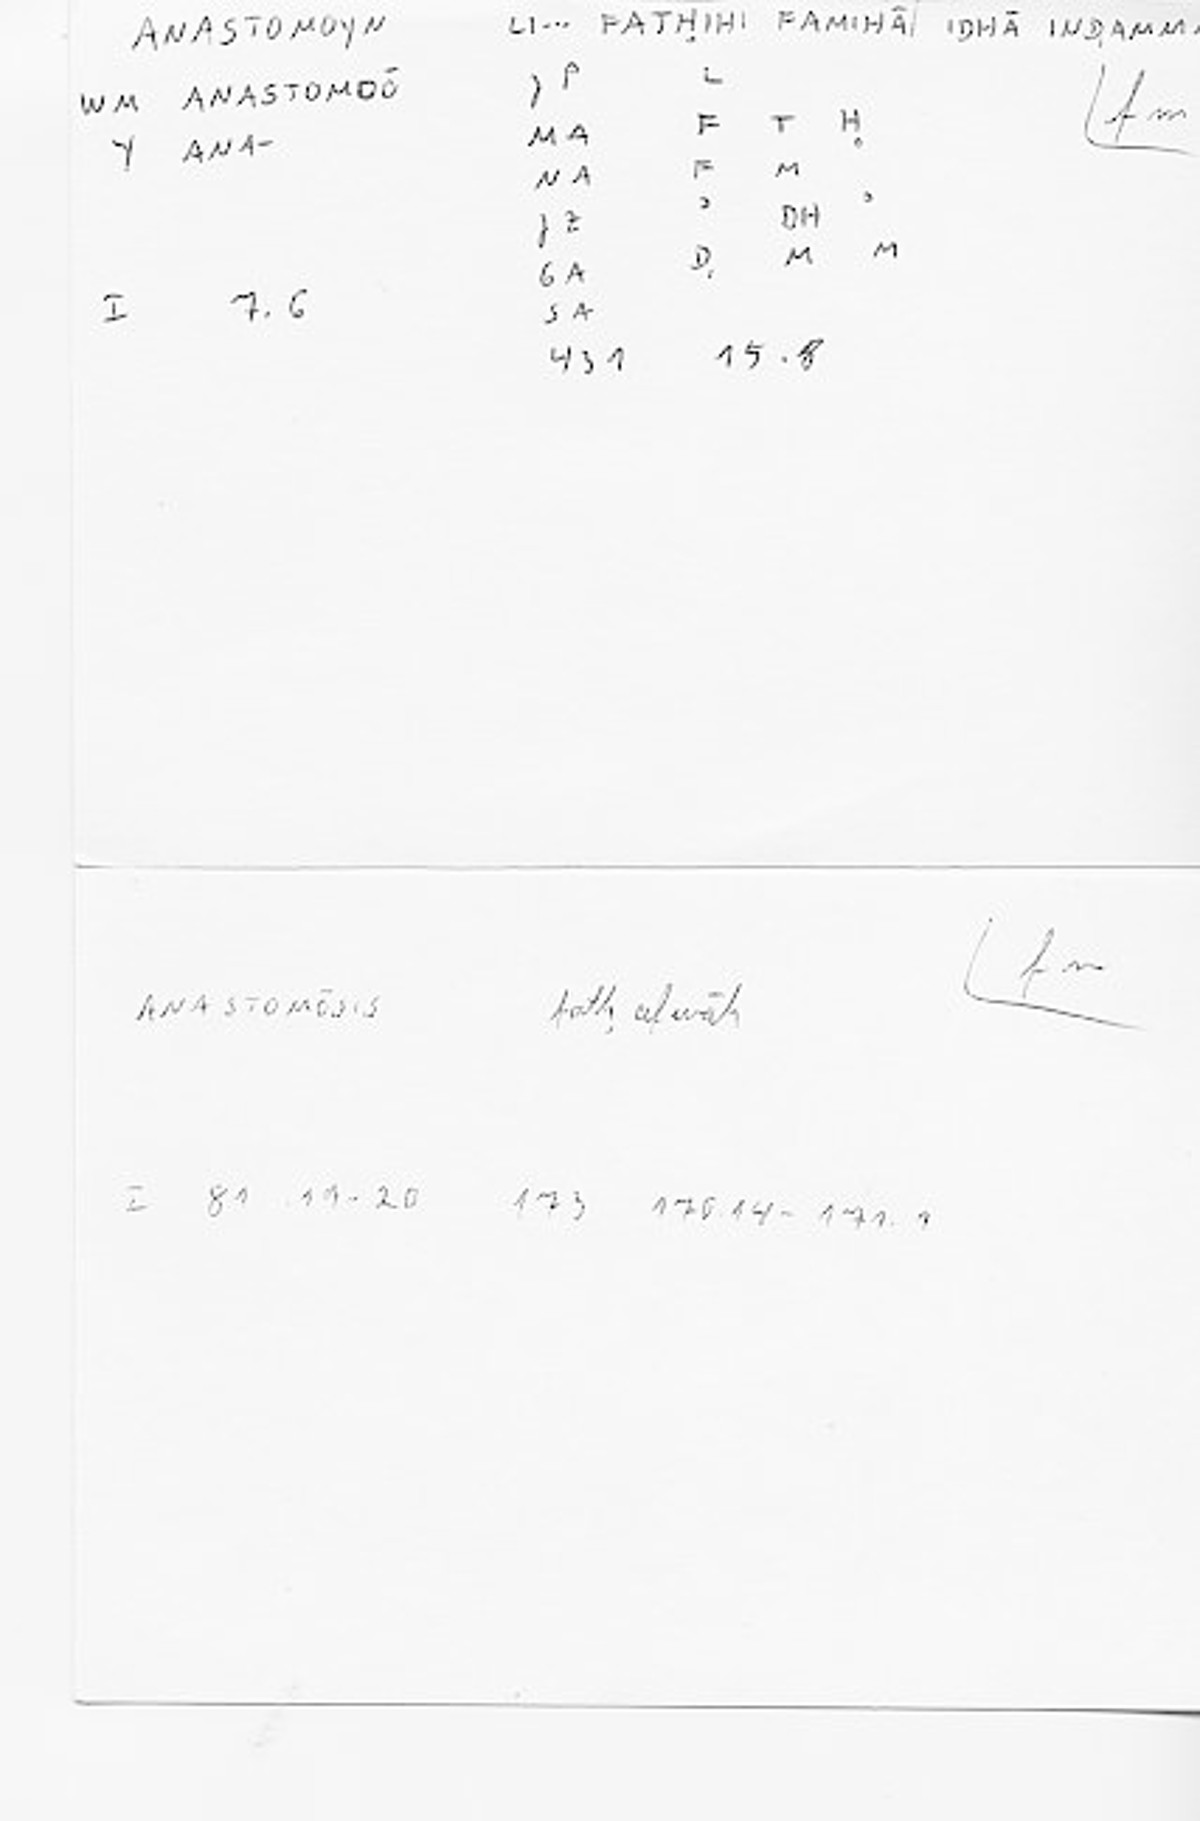 ANASTOMOYN LI... FATḤIHI FAMIHĀ IDHĀ INḌAMMA
WM ANASTOMOŌ JP L
Y ANA- MA F T Ḥ
NA F M
JZ ʾ DH ʾ
GA Ḍ M M
SA
I 7.6
431 15.8
fm
fm
ANASTOMŌSIS
I 81 .19-20 173 170.14- 171.1